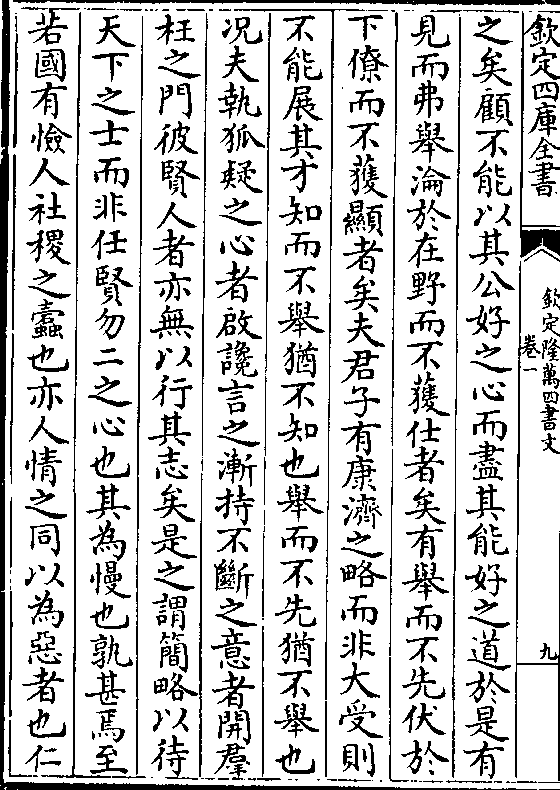 欽定四庫全書
欽定隆萬四書文
卷一
九
之矣顧不能以其公好之心而盡其能好之道於是有
見而弗舉淪於在野而不獲仕者矣有舉而不先伏於
下僚而不獲顯者矣夫君子有康濟之略而非大受則
不能展其才知而不舉猶不知也舉而不先猶不舉也
况夫執狐疑之心者啟讒言之漸持不斷之意者開羣
枉之門彼賢人者亦無以行其志矣是之謂簡略以待
天下之士而非任賢勿二之心也其為慢也孰甚焉至
若國有憸人社稷之蠧也亦人情之同以為惡者也仁